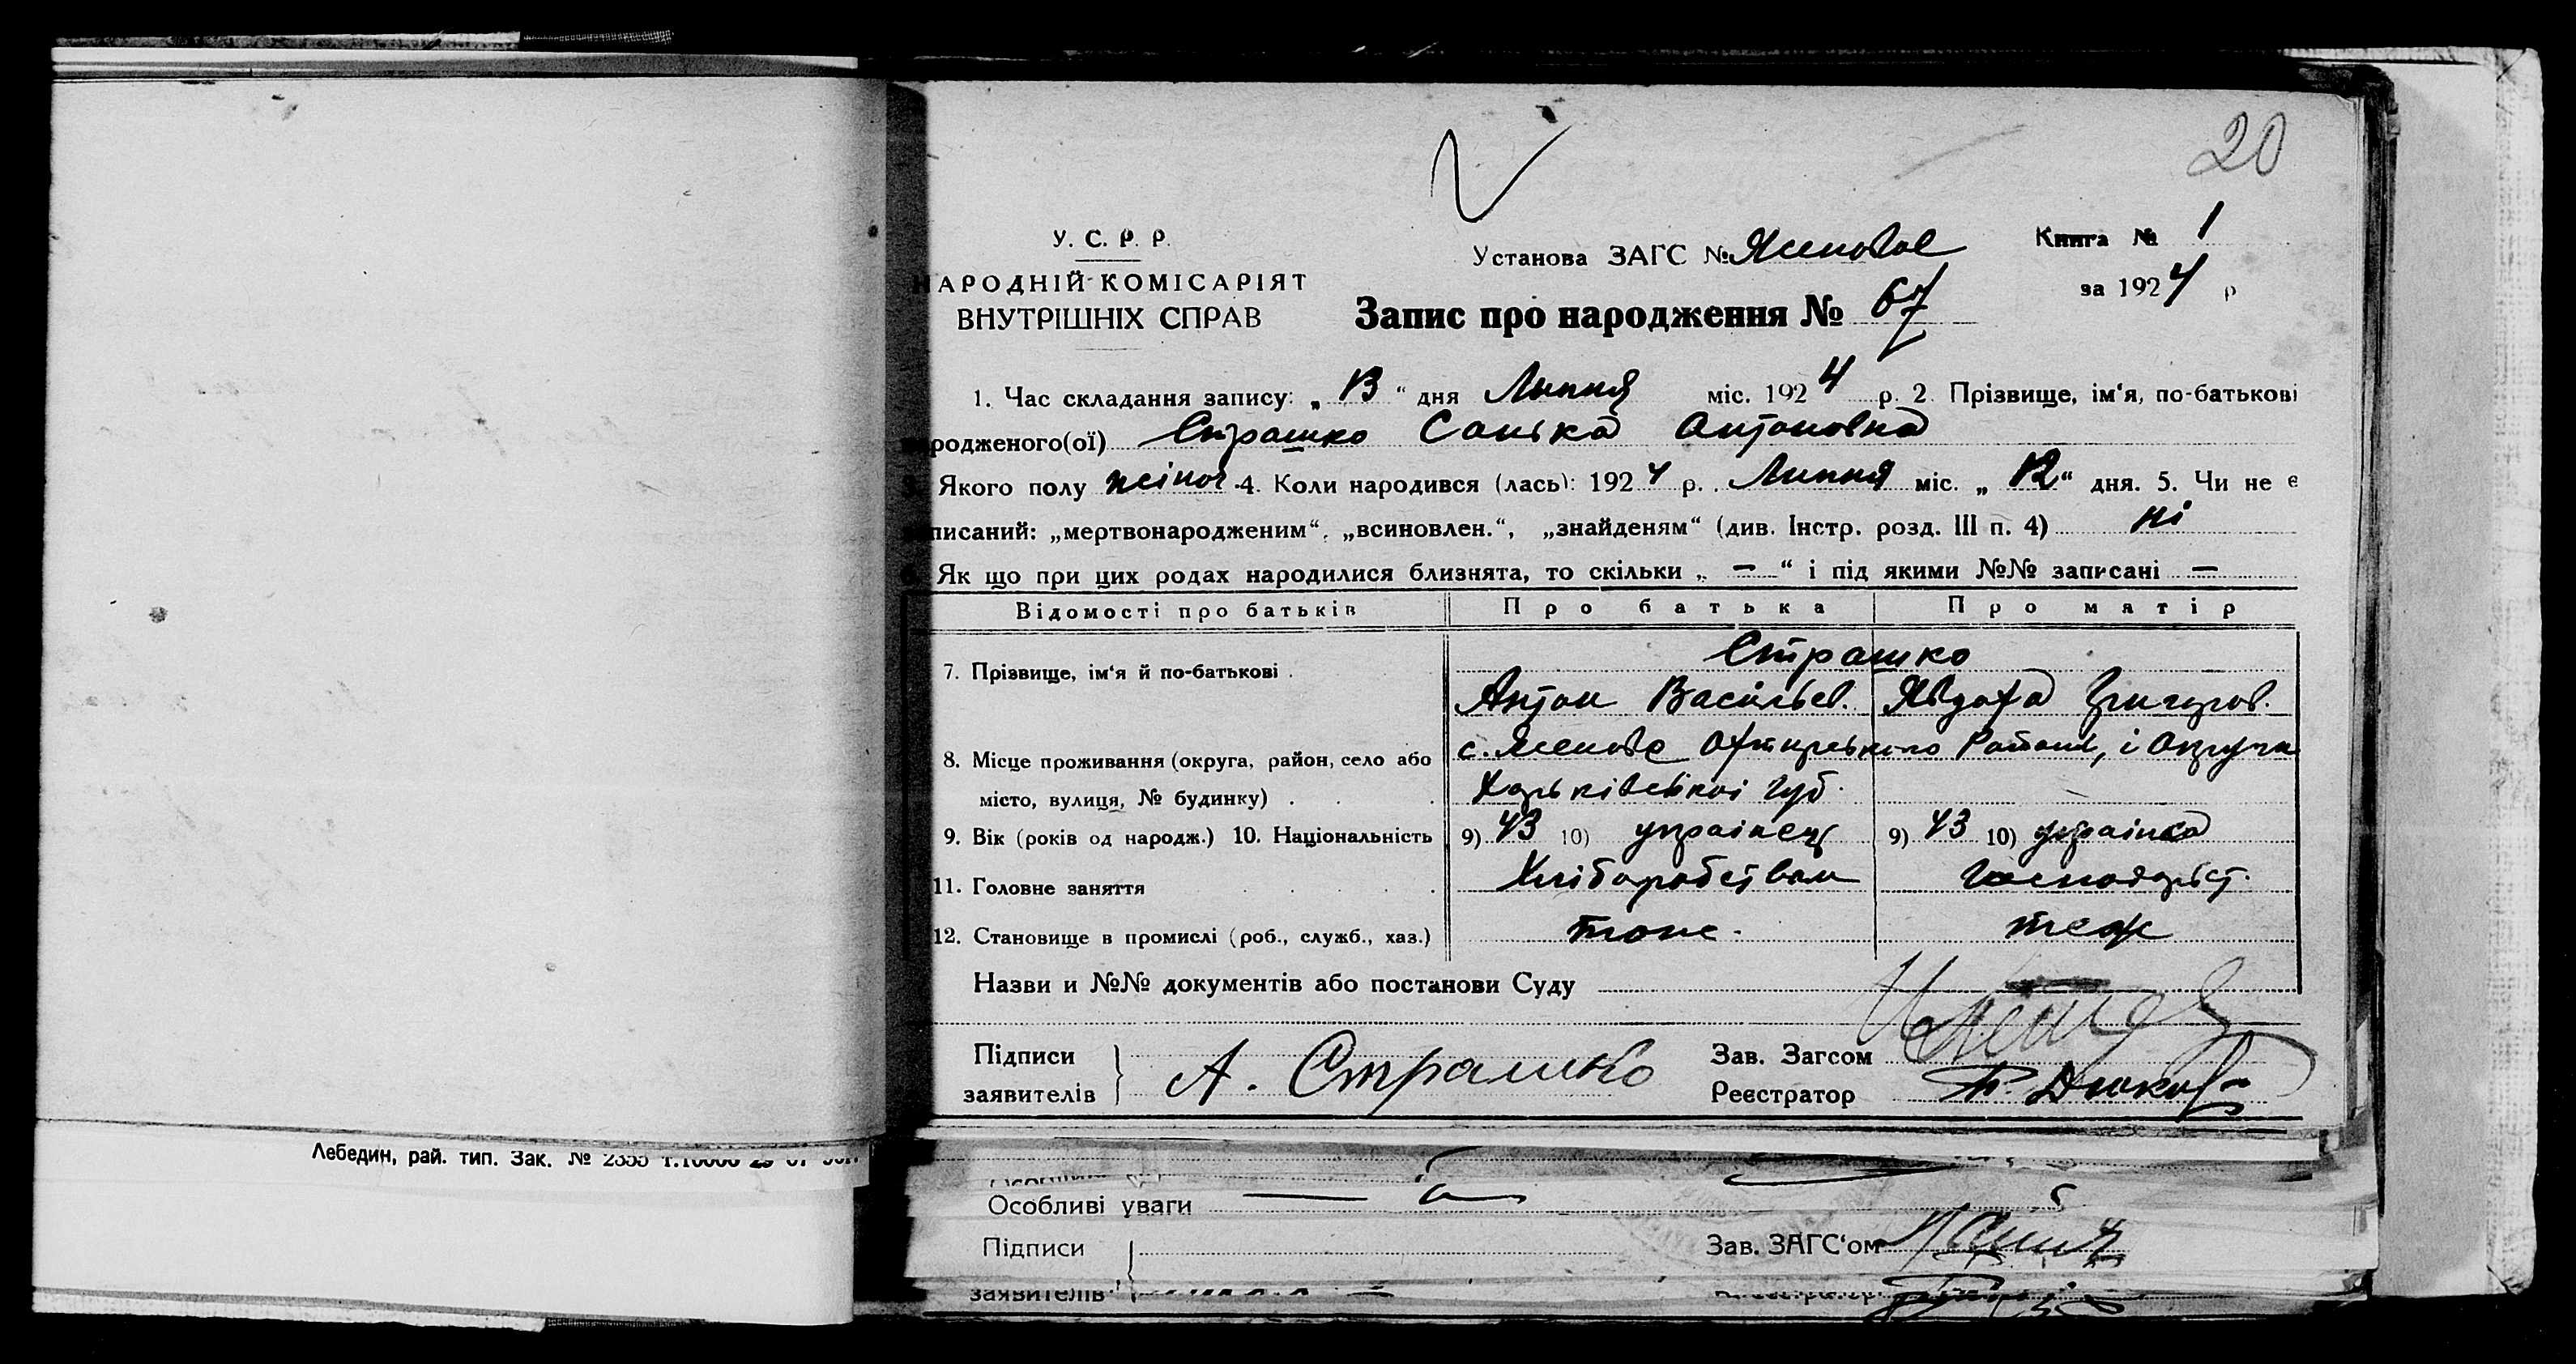 20
У. С. Р. Р.
НАРОДНІЙ КОМІСАРІЯТ
ВНУТРІШНІХ СПРАВ
Установа ЗАГС № Ясеновое
Книга № 1
за 1924 р
Запис про народження № 67
1. Час складання запису: „ 13 “ дня Липня міс. 1924 р. 2. Прізвище, ім‘я, по-батькові
родженого(ої) Страшко Санька Антоновна
Якого полу жіноч. 4. Коли народився (лась): 1924 р. Липня міс. „ 12 “ дня. 5. Чи не є
писаний: „мертвонародженим“, „всиновлен.“, „знайденям“ (див. Інстр. розд. III п. 4) ні
Як що при цих родах народилися близнята, то скільки „ — “ і під якими №№ записані —
Відомості про батьків Про батька Про матір
7. Прізвище, ім‘я й по-батькові . Страшко
Антон Васильев. Явдоха Григоров.
8. Місце проживання (округа, район, село або с. Ясенове Охтирського Району, і Округи
місто, вулиця, № будинку) . . . Харьківської губ.
9. Вік (років од народж.) 10. Національність 9) 43 10) українец 9) 43 10) українка
11. Головне заняття Хліборобством Господарст.
12. Становище в промислі (роб., служб., хаз.) тоже. теж
Назви и №№ документів або постанови Суду
Підписи
заявителів А. Страшко
Зав. Загсом
Реєстратор
Лебедин, рай. тип. Зак. № 2355
Особливі уваги
Підписи
Зав. ЗАГС‘ом
заявителів